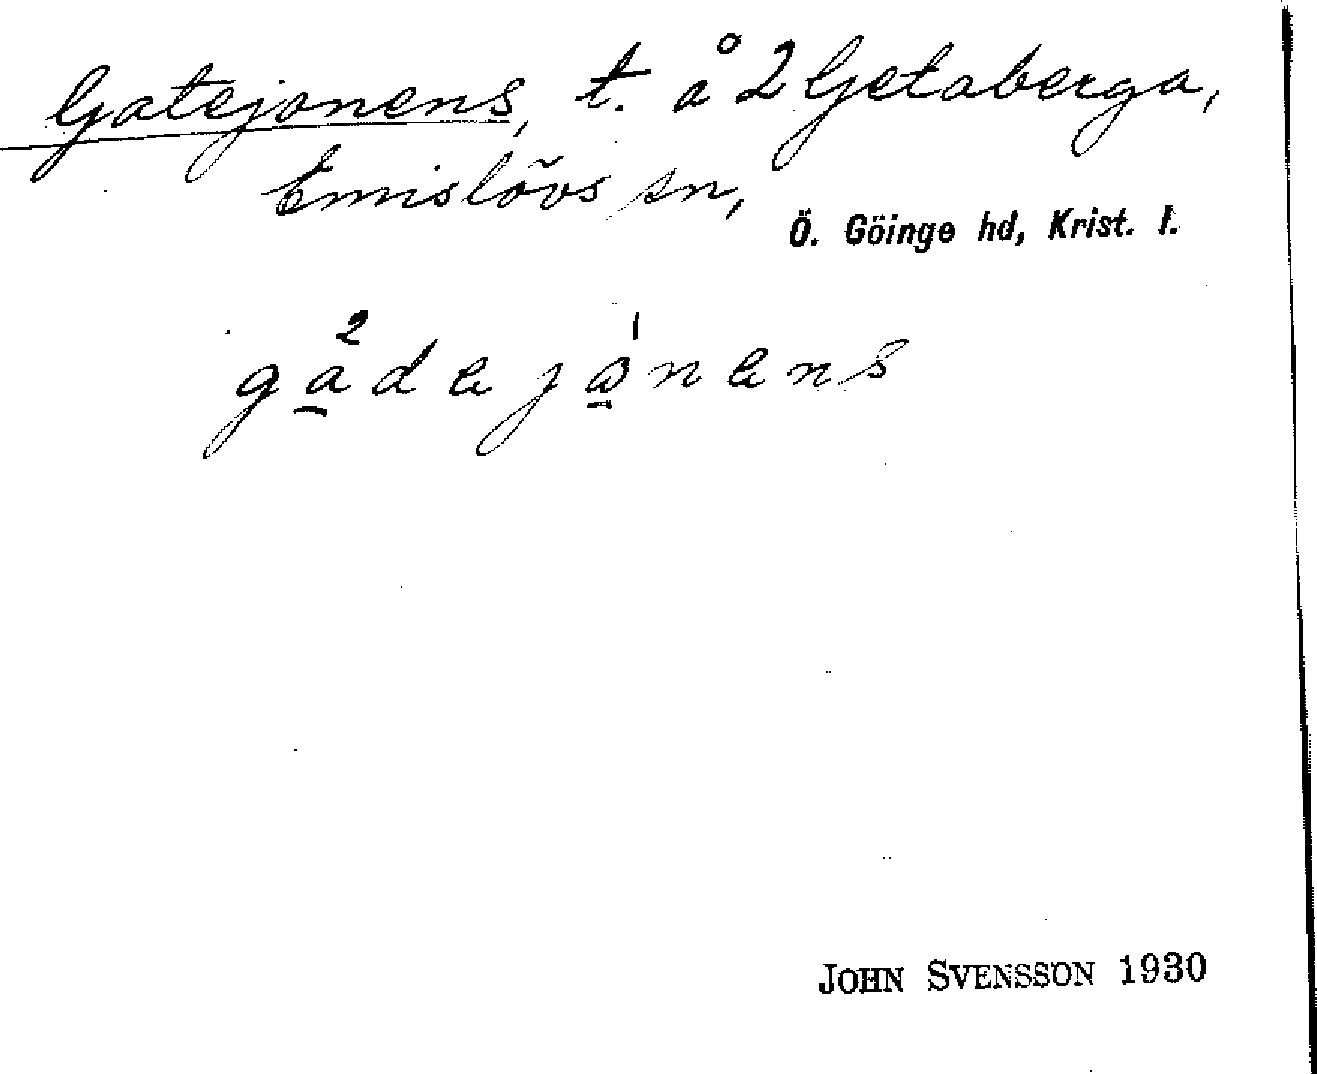 Gatejonens, t. å 2 Getaberga,
Emislövs sn,
Ö. Göinge hd, Krist. l.
ga²dejo¹nens
JOHN SVENSSON 1930